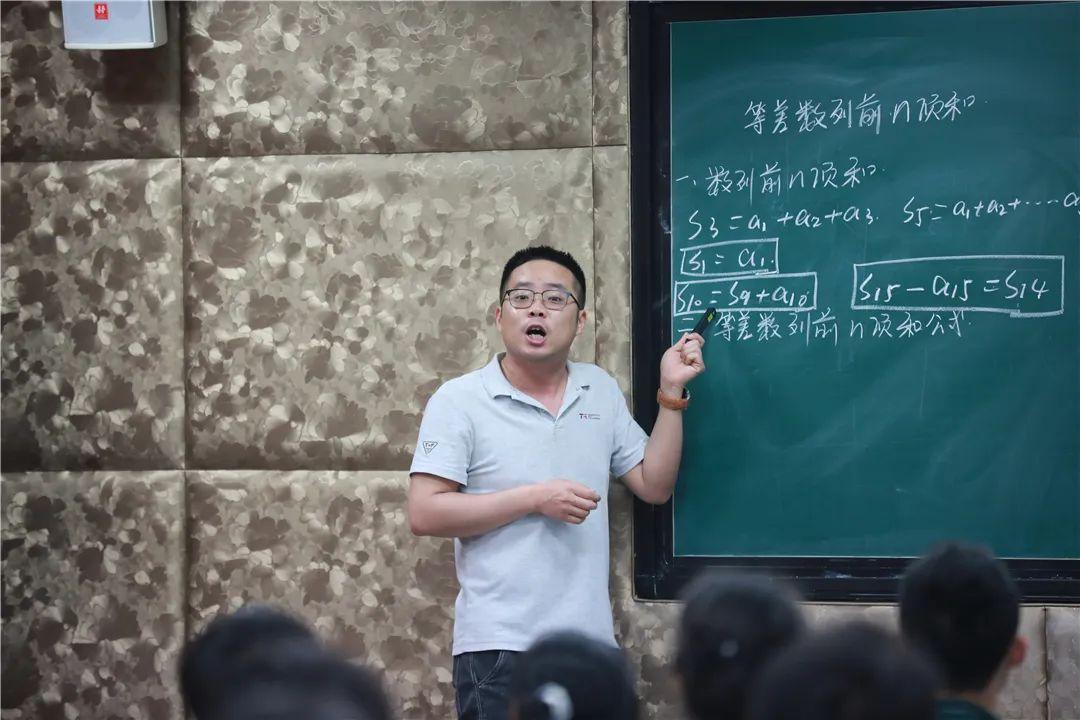 等差数列前n项和.
一、数列前n项和.
S3=a1+a2+a3. S5=a1+a2+····a
S1=a1.
S10=S9+a10 S15-a15=S14
二 等差数列前n项和公式